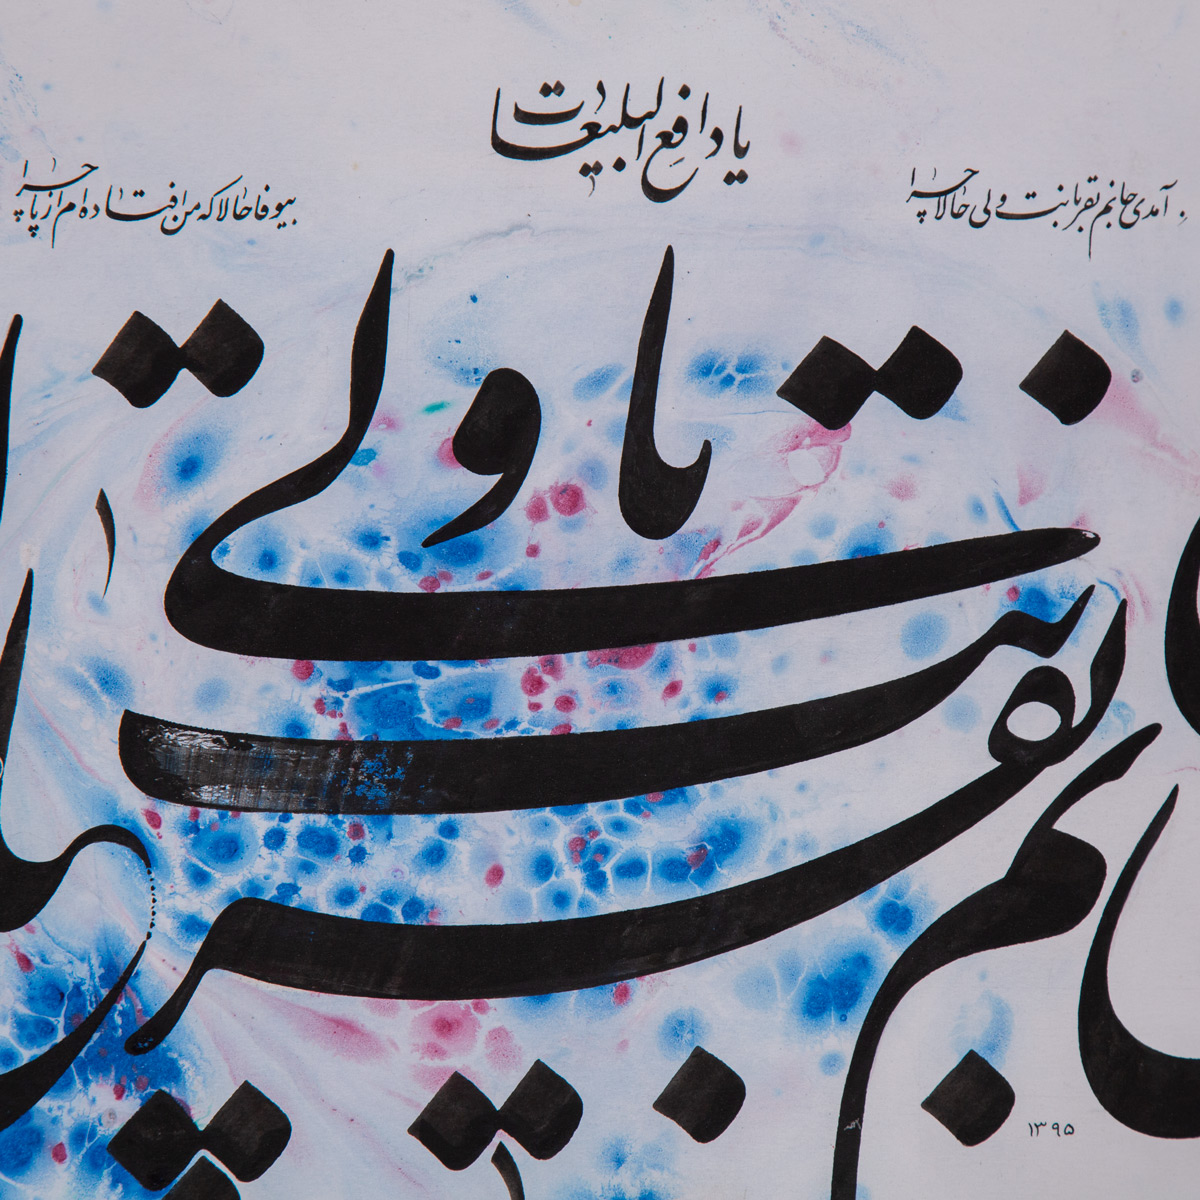 یا دافع البلیعات
آمدی جانم بقربانت ولی حالا چرا
بیوفا حالا که من افتاده ام از پا چرا
جانم بقربانت ولی
۱۳۹۵